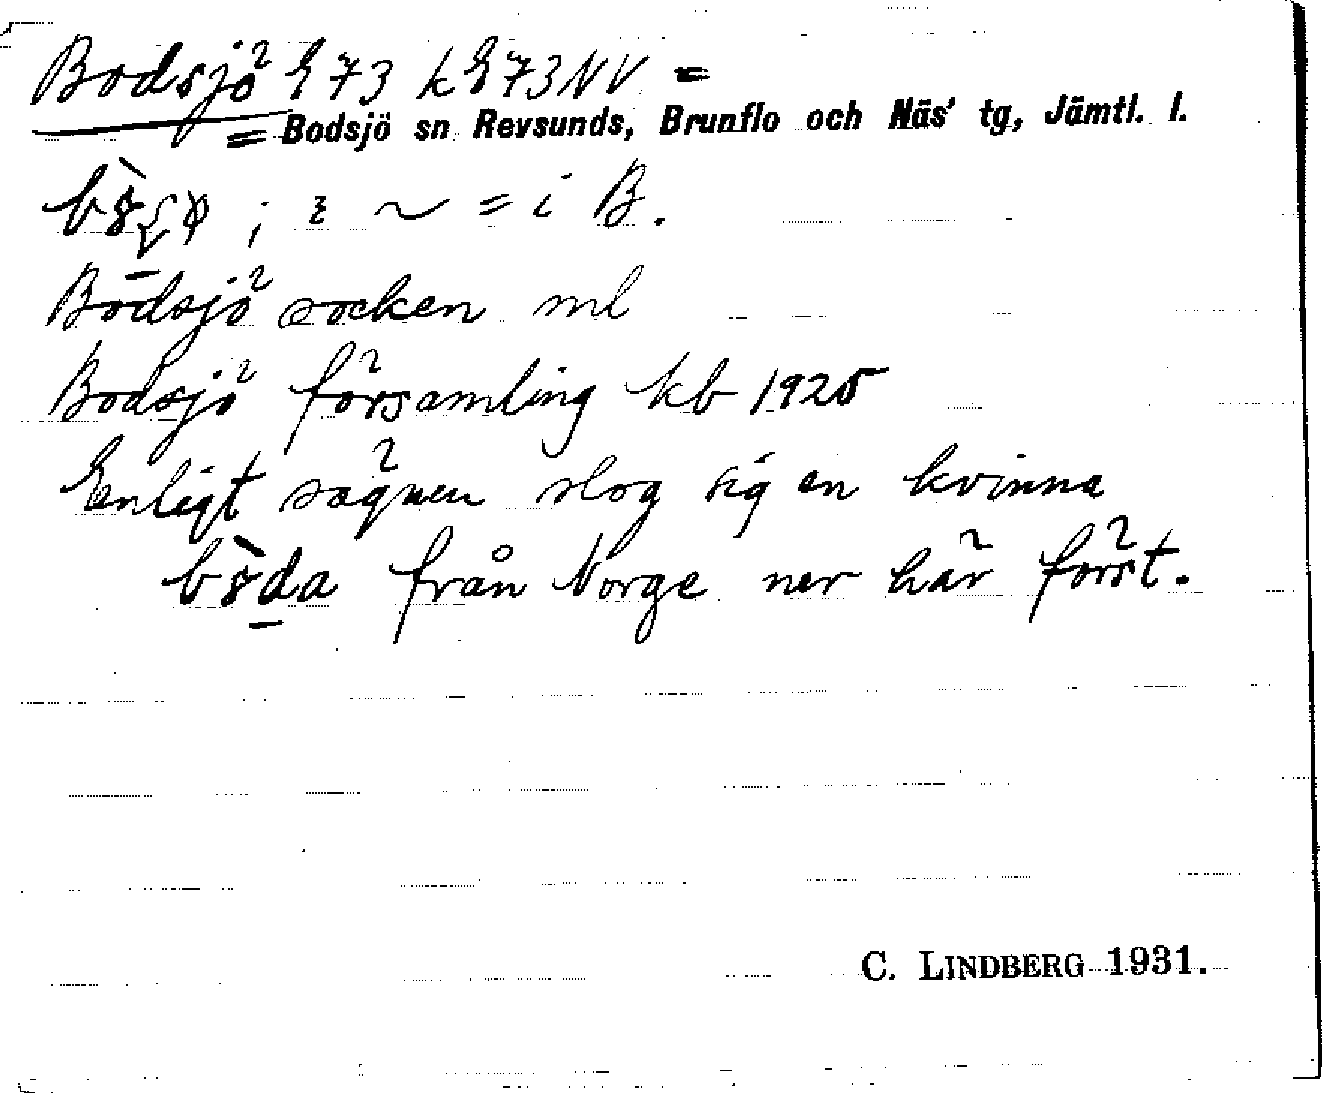 Bodsjö E 73 k E73NV =
= Bodsjö sn Revsunds, Brunflo och Näs' tg, Jämtl. l.
; ~ = i B.
Bodsjö socken ml
Bodsjö församling kb 1925
Enligt sägnen slog sig en kvinna
från Norge ner här först.
C. LINDBERG 1931.